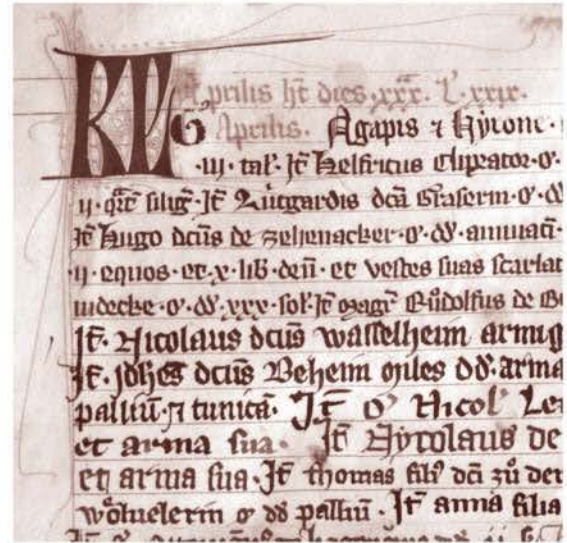 KL Aprilis ht dies .xxx. L. xxix.
G Aprilis. Agapis ⁊ Hyrone .
.iij. tal. Jt Helfricus Cliprator .o.
ij. qrt silig. Jt Lutgardis dca Graserm .o. d
Jt Hugo dcus de Zehenacker .o. dd. annuati.
.ij. equos . et .x. lib. den . et vestes suas scarlat
indecke .o. dd. xxx. sol. Jt magr Rudolfus de
Jt. Nicolaus dcus wasselheim armig
Jt. Johes dcus Beheim miles dd. arma
palliu. ⁊ tunica. Jt o Nicol Le
et arma sua. Jt Nycolaus de
et arma sua. Jt thomas fili dci zu der
woluelerin o dd palliu . Jt anna filia